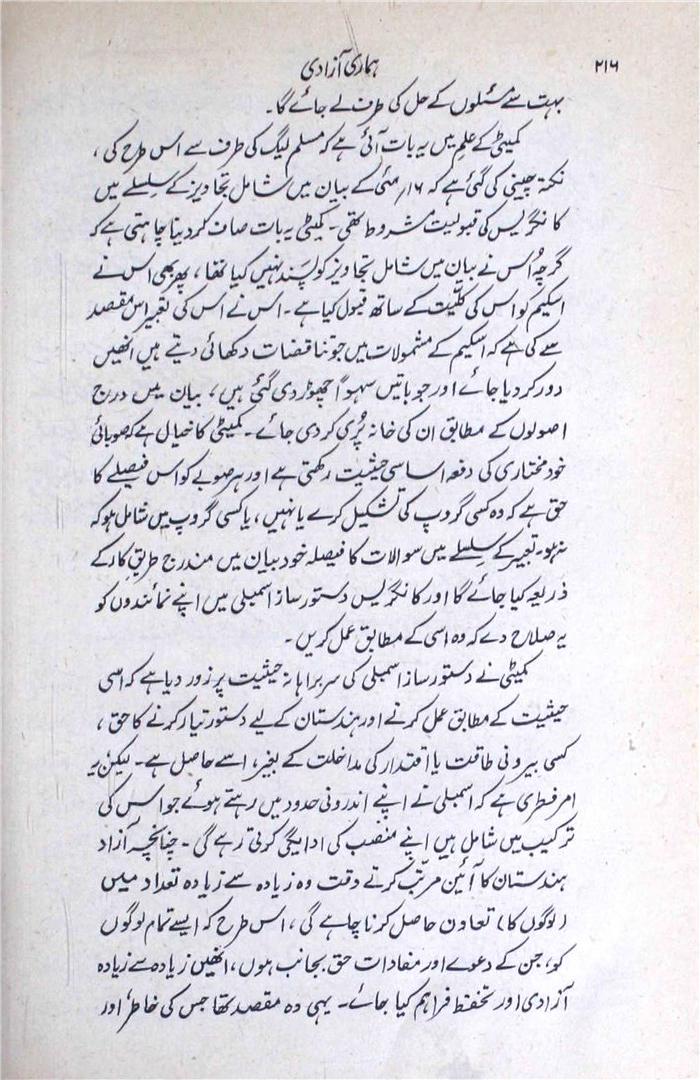 ۲۱۶
ہماری آزادی
بہت سے مسئلوں کے حل کی طرف لے جائے گا۔
کمیٹی کے علم میں یہ بات آئی ہے کہ مسلم لیگ کی طرف سے اس طرح کی ،
نکتہ چینی کی گئی ہے کہ ۱۶ مئی کے بیان میں شامل تجاویز کے سلسلے میں
کانگریس کی قبولیت مشروط تھی۔ کمیٹی یہ بات صاف کر دینا چاہتی ہے کہ
گرچہ اُس نے بیان میں شامل تجاویز کو پسند نہیں کیا تھا ، پھر بھی اس نے
اسکیم کو اس کی کلّیت کے ساتھ قبول کیا ہے۔ اس نے اس کی تعبیر اس مقصد
سے کی ہے کہ اسکیم کے مشمولات میں جو تناقضات دکھائی دیتے ہیں انھیں
دور کر دیا جائے اور جو باتیں سہواً چھوڑ دی گئی ہیں ، بیان میں درج
اصولوں کے مطابق ان کی خانہ پُری کر دی جائے۔ کمیٹی کا خیال ہے کہ صوبائی
خود مختاری کی دفعہ اساسی حیثیت رکھتی ہے اور ہر صوبے کو اس فیصلے کا
حق ہے کہ وہ کسی گروپ کی تشکیل کرے یا نہیں ، یا کسی گروپ میں شامل ہو کہ
نہ ہو۔ تعبیر کے سلسلے میں سوالات کا فیصلہ خود بیان میں مندرج طریقِ کار کے
ذریعہ کیا جائے گا اور کانگریس دستور ساز اسمبلی میں اپنے نمائندوں کو
یہ صلاح دے کہ وہ اسی کے مطابق عمل کریں۔
کمیٹی نے دستور ساز اسمبلی کی سربراہانہ حیثیت پر زور دیا ہے کہ اسی
حیثیت کے مطابق عمل کرنے اور ہندستان کے لیے دستور تیار کرنے کا حق ،
کسی بیرونی طاقت یا اقتدار کی مداخلت کے بغیر، اسے حاصل ہے۔ لیکن یہ
امر فطری ہے کہ اسمبلی نے اپنے اندرونی حدود میں رہتے ہوئے جو اس کی
ترکیب میں شامل ہیں اپنے منصب کی ادایگی کرتی رہے گی۔ چنانچہ آزاد
ہندستان کا آئین مرتّب کرتے وقت وہ زیادہ سے زیادہ تعداد میں
(لوگوں کا) تعاون حاصل کرنا چاہے گی ، اس طرح کہ ایسے تمام لوگوں
کو، جن کے دعوے اور مفادات حق بجانب ہوں ، انھیں زیادہ سے زیادہ
آزادی اور تحفظ فراہم کیا جائے۔ یہی وہ مقصد تھا جس کی خاطر اور